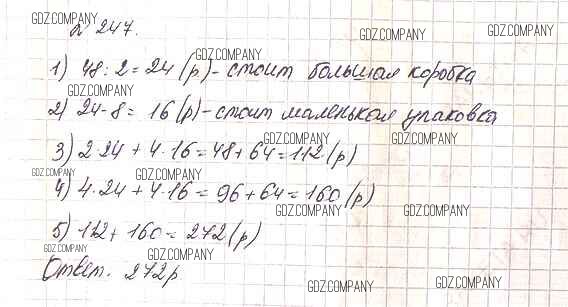 GDZ.COMPANY
№ 247.
GDZ.COMPANY GDZ.COMPANY
GDZ.COMPANY
1) 48 : 2 = 24 (р) - стоит большая коробка
GDZ.COMPANY
2) 24 - 8 = 16 (р) - стоит маленькая упаковка
GDZ.COMPANY GDZ.COMPANY
3) 2·24 + 4·16 = 48 + 64 = 112 (р)
GDZ.COMPANY GDZ.COMPANY
4) 4·24 + 4·16 = 96 + 64 = 160 (р)
GDZ.COMPANY GDZ.COMPANY
5) 112 + 160 = 272 (р)
GDZ.COMPANY GDZ.COMPANY
Ответ. 272р
GDZ.COMPANY GDZ.COMPANY